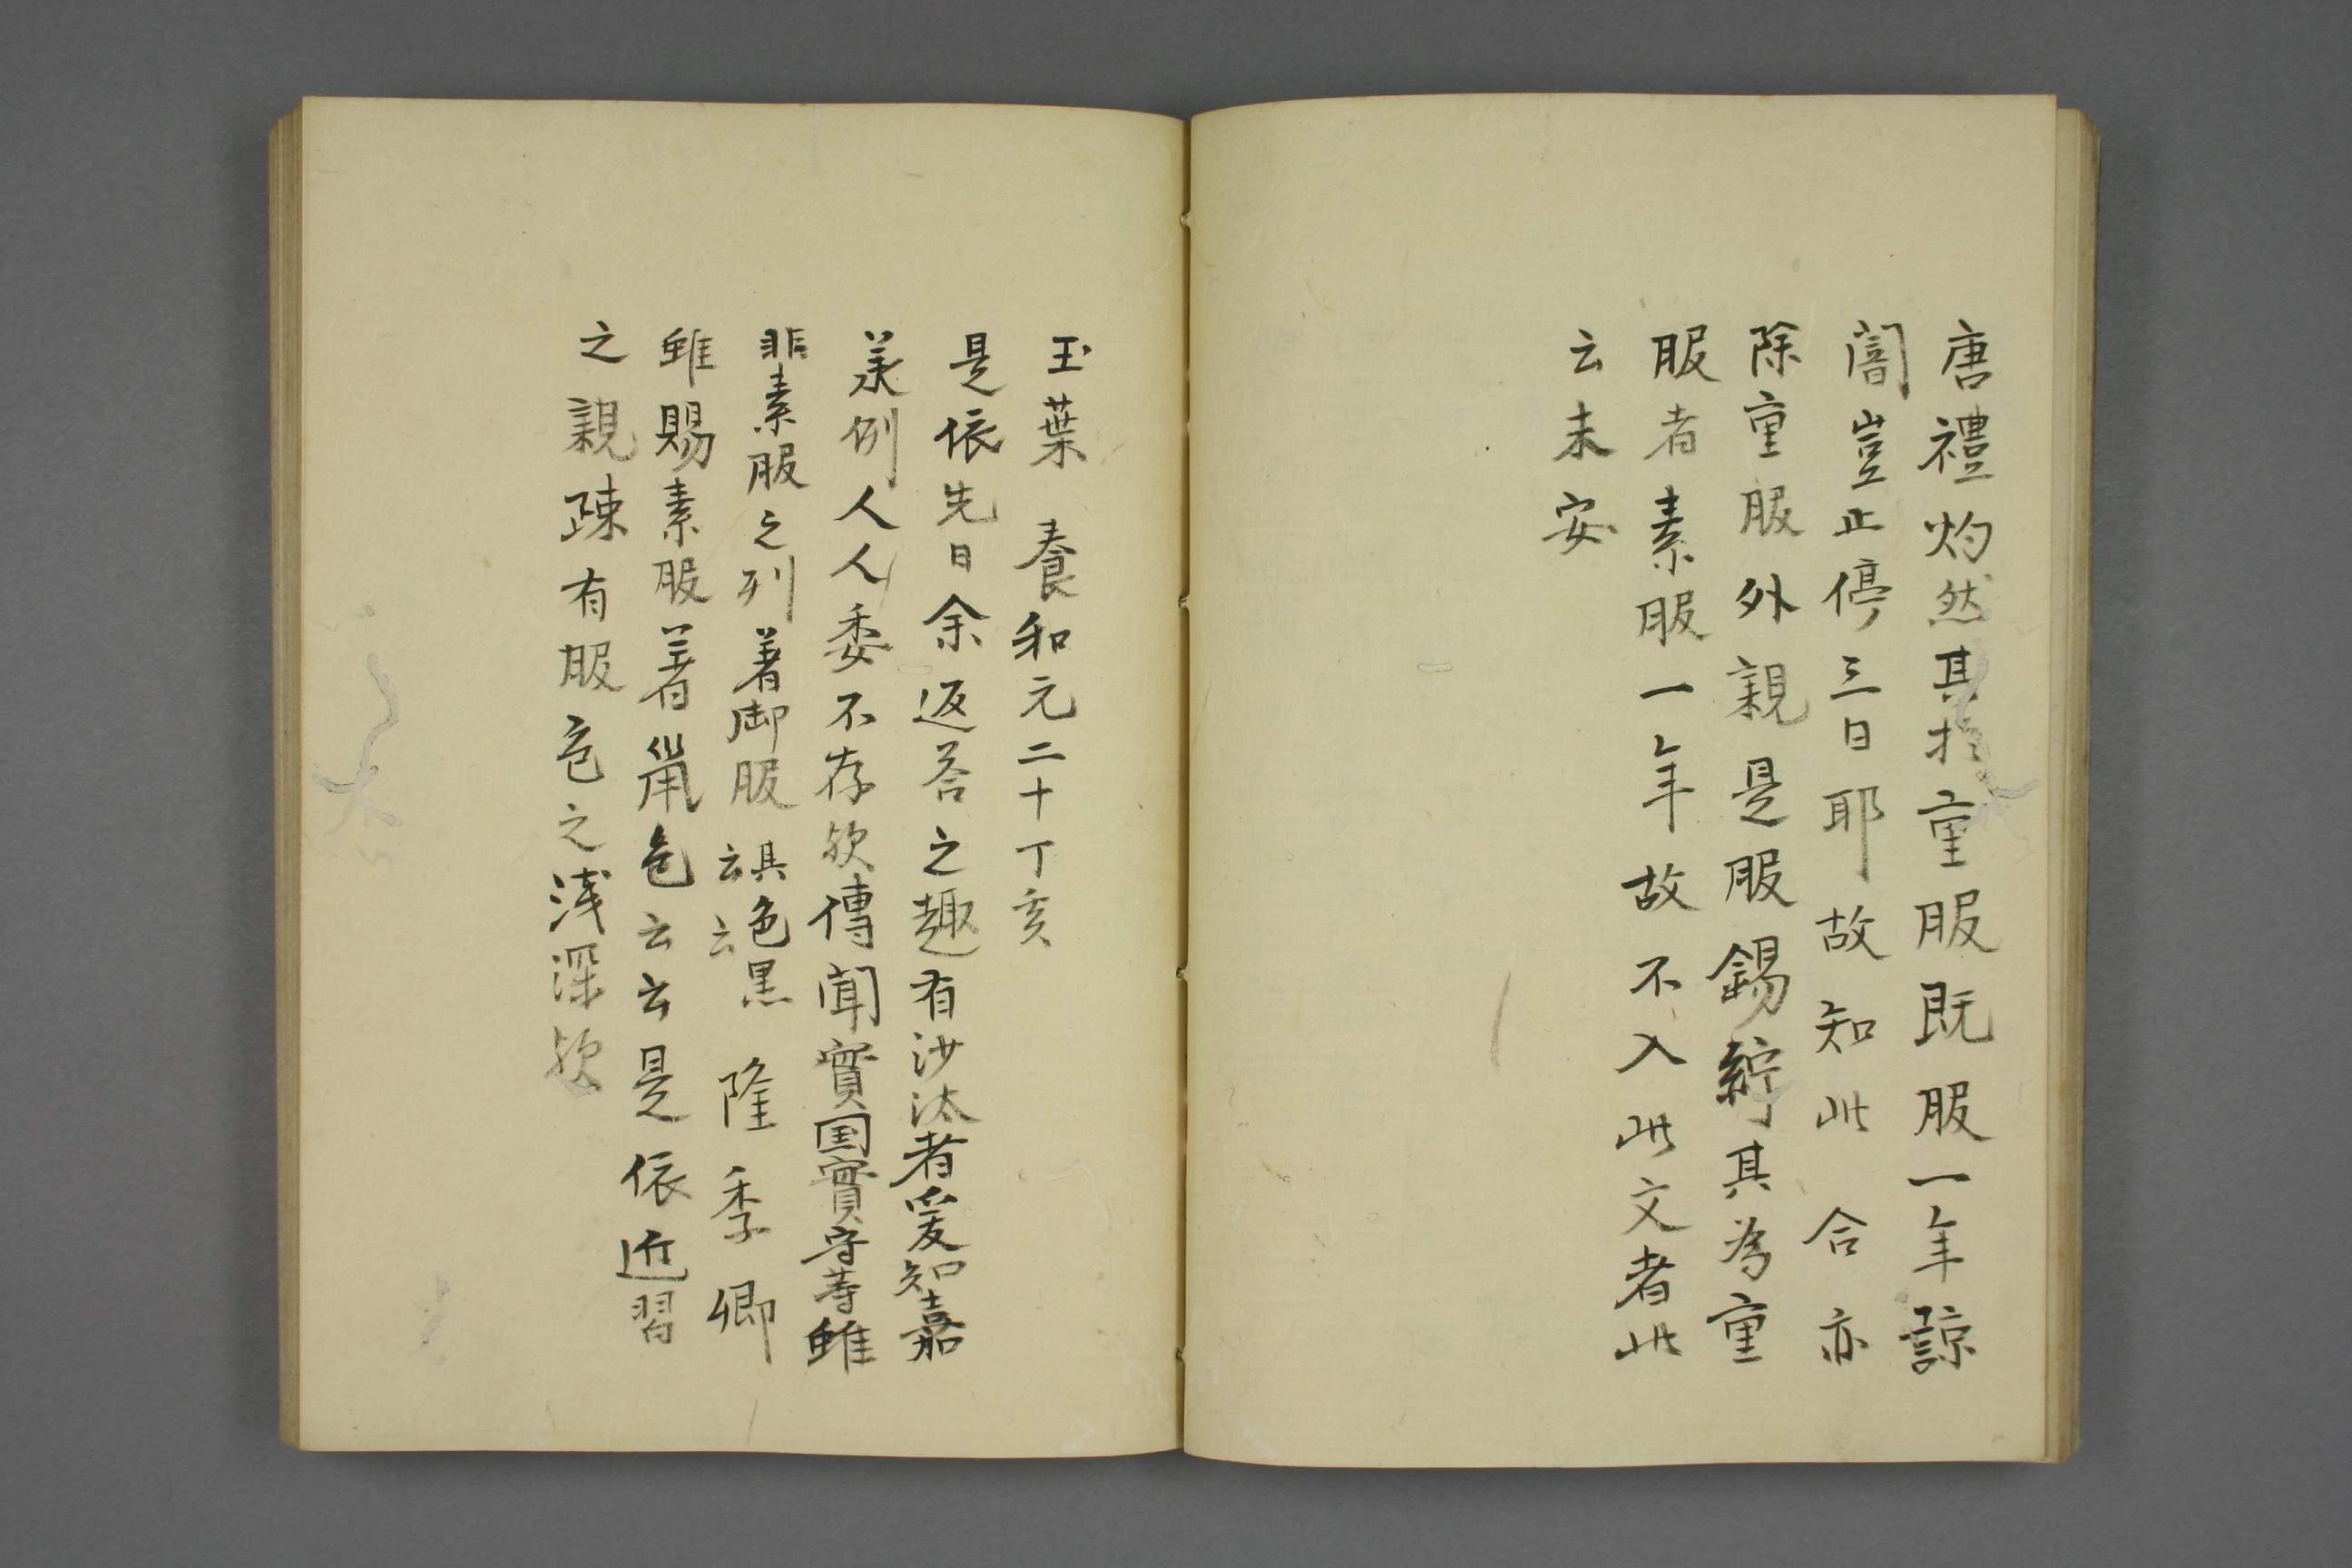 唐禮灼然其於重服既服一年諒
闇豈止停三日耶故知此合亦
除重服外親是服錫紵其為重
服者素服一年故不入此文者此
云未安
玉葉　養和元二十丁亥
是依先日余返荅之趣有沙汰者爰知嘉
羕例人人委不存欤傳聞實国實守等雖
非素服之列著御服其色黒云云隆季卿
雖賜素服著鼠色云云是依近習
之親疎有服色之浅深欤